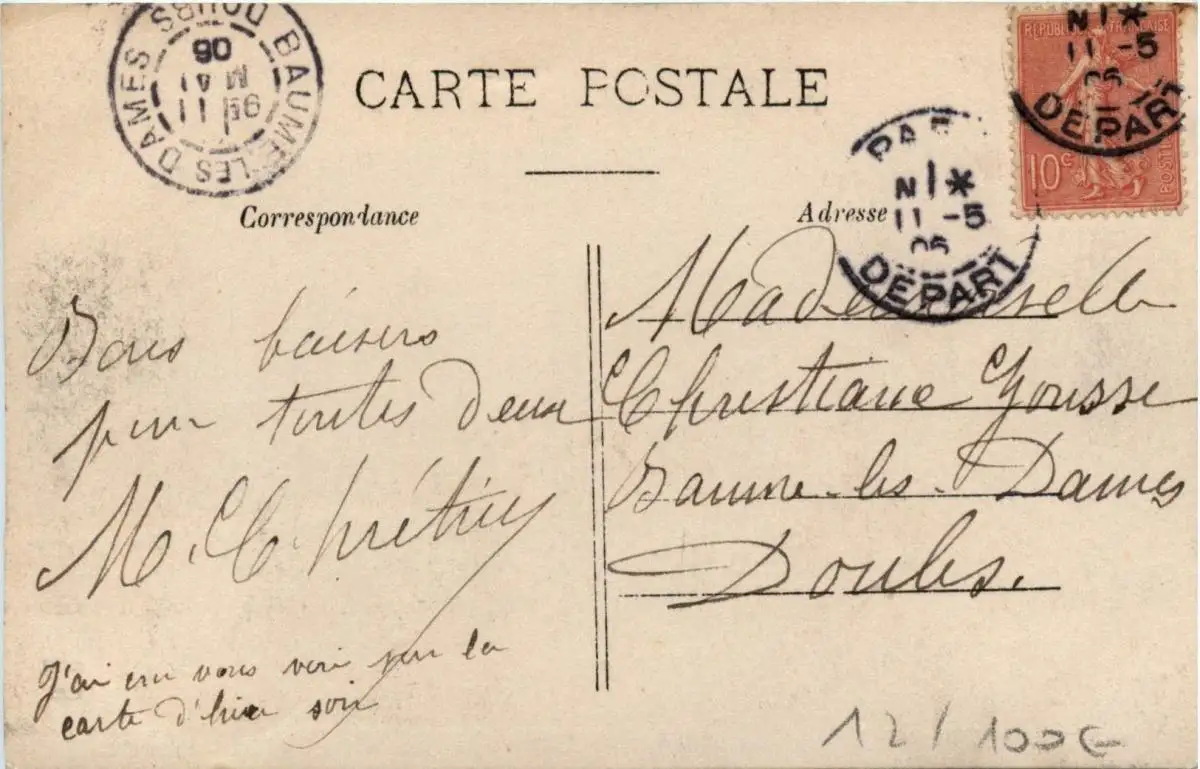 BAUME-LES-DAMES DOUBS
11 MAI
06
CARTE POSTALE
REPUBLIQUE FRANÇAISE
10c
POSTES
N 1*
11 -5
06
DEPART
PAR
N 1*
11 -5
06
DEPART
Correspondance
Adresse
Bons baisers
pour toutes deux
M. Chrétien
J'ai cru vous voir sur la
carte d'hier soir
Mademoiselle
Christiane
Baume-les-Dames
Doubs.
12/100€